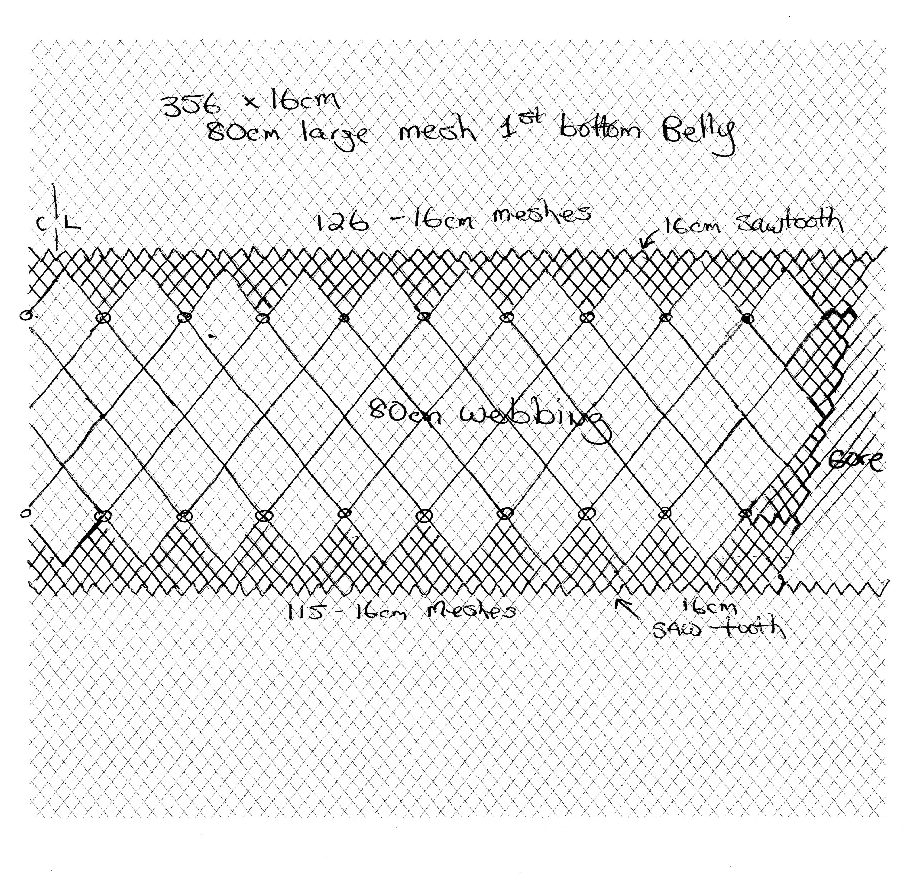 356 x 16cm
80cm large mesh 1st bottom Belly
C L
126 - 16cm meshes
16cm sawtooth
80cm webbing
Gore
115 - 16cm Meshes
16cm
SAW-tooth